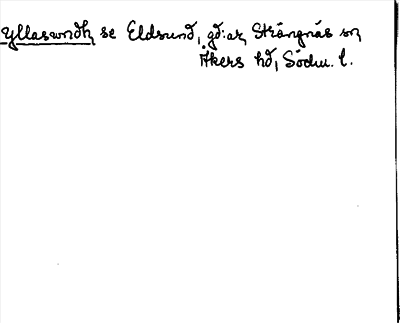 Yllaswndh se Eldsund, gd:ar, Strängnäs sn
Åkers hd, Södm. l.